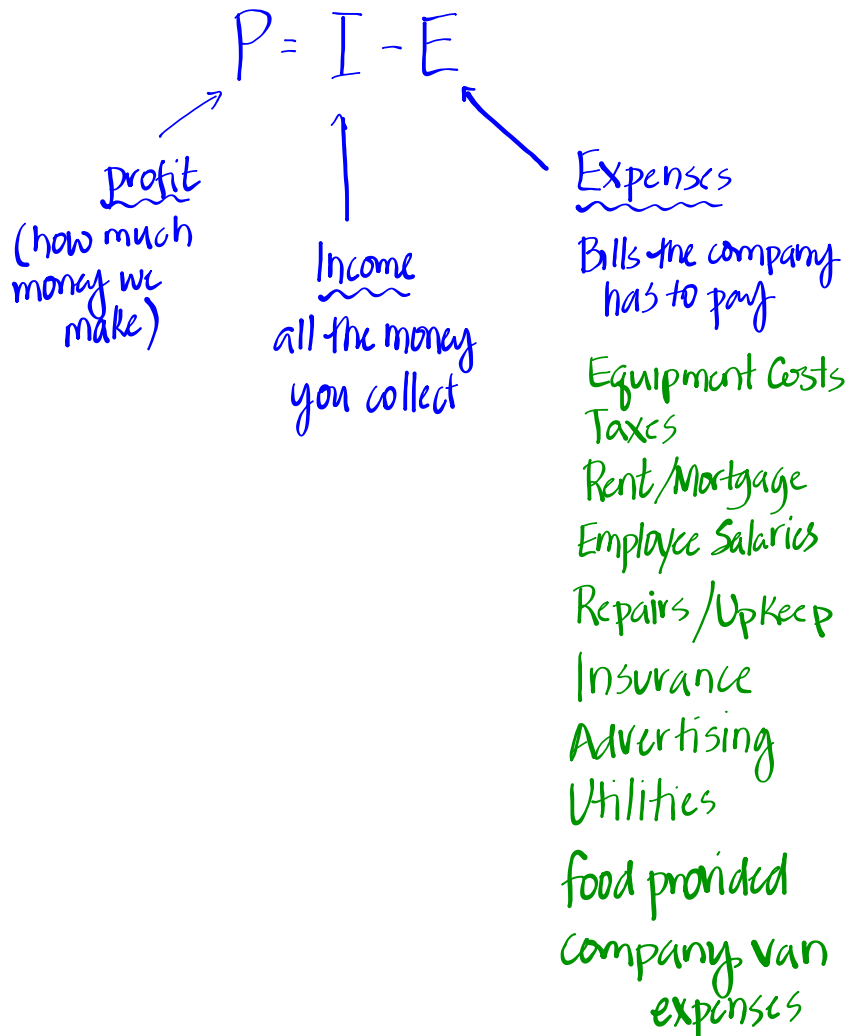 P = I - E
profit
(how much
money we
make)
Income
all the money
you collect
Expenses
Bills the company
has to pay
Equipment Costs
Taxes
Rent/Mortgage
Employee Salaries
Repairs/Upkeep
Insurance
Advertising
Utilities
food provided
company van
expenses